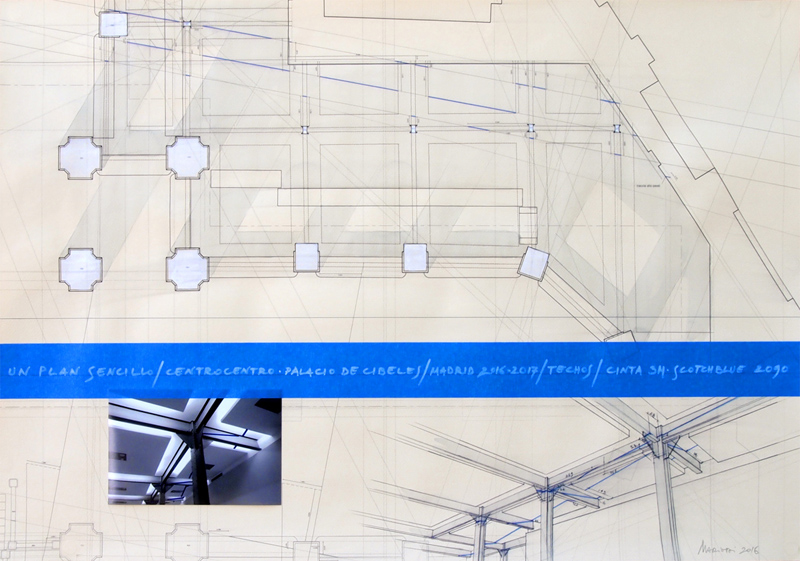 UN PLAN SENCILLO/CENTROCENTRO·PALACIO DE CIBELES/MADRID 2016-2017/TECHOS/CINTA 3M·SCOTCHBLUE 2090
2016